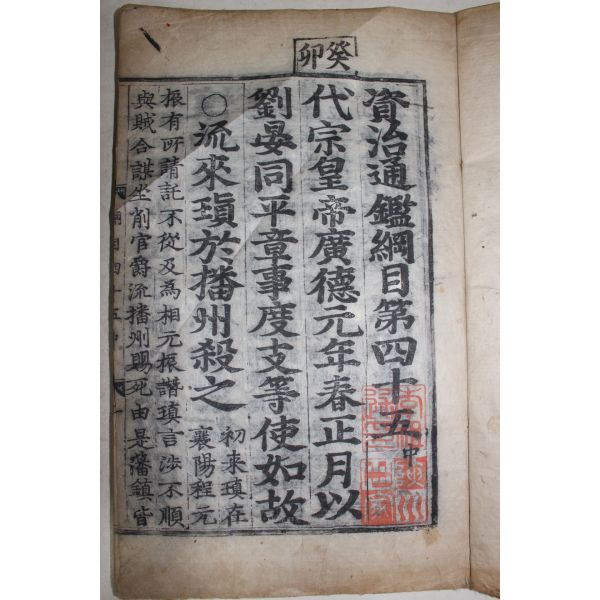 癸卯
資治通鑑綱目第四十五中
代宗皇帝廣德元年春正月以
劉晏同平章事度支等使如故
○流來瑱於播州殺之
初來瑱在
襄陽程元
振有所請託不從及為相元振譖瑱言涉不順
與賊合謀坐削官爵流播州賜死由是藩鎮皆
綱目四十五中